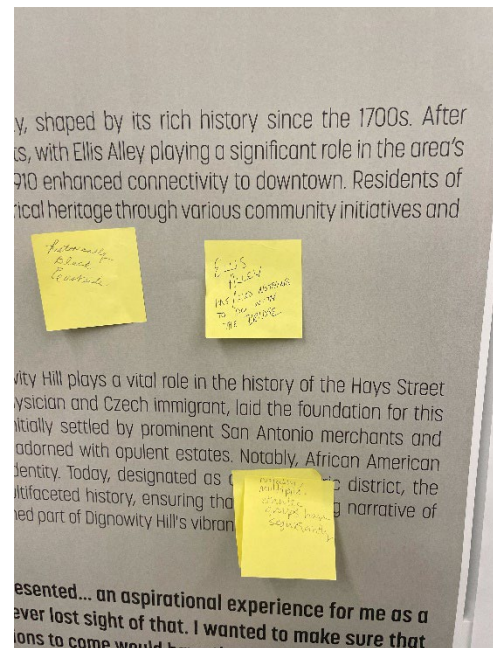 y, shaped by its rich history since the 1700s. After
ts, with Ellis Alley playing a significant role in the area's
910 enhanced connectivity to downtown. Residents of
rical heritage through various community initiatives and
Historically
Black
Eastside
Ellis
Alley
HAS NOTHING
TO DO WITH
THE BRIDGE
wity Hill plays a vital role in the history of the Hays Street
ysician and Czech immigrant, laid the foundation for this
nitially settled by prominent San Antonio merchants and
adorned with opulent estates. Notably, African American
dentity. Today, designated as a
ic district, the
ultifaceted history, ensuring tha
g narrative of
ned part of Dignowity Hill's vibran
multiple
groups have
significantly
esented... an aspirational experience for me as a
ever lost sight of that. I wanted to make sure that
ions to come would